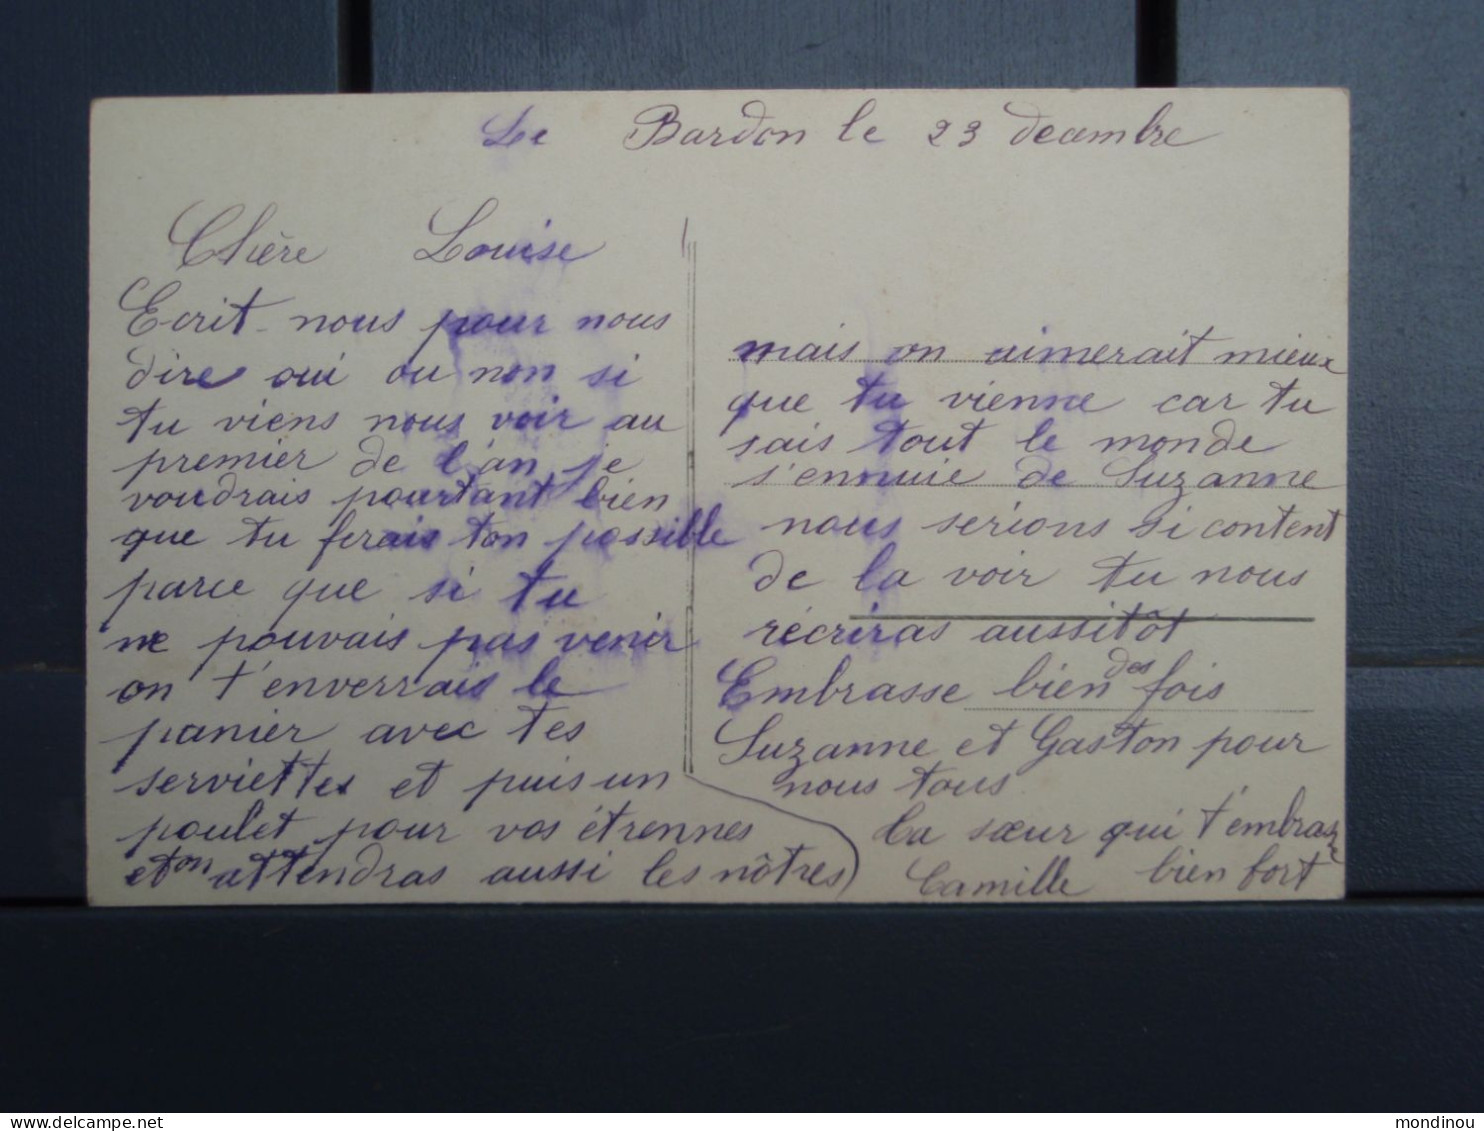 Le Bardon le 23 decembre
Chère Louise
Ecrit-nous pour nous
dire oui ou non si
tu viens nous voir au
premier de l'an, je
voudrais pourtant bien
que tu ferais ton possible
parce que si tu
ne pouvais pas venir
on t'enverrais le
panier avec tes
serviettes et puis un
poulet pour vos étrennes
et on attendras aussi les nôtres
mais on aimerait mieux
que tu vienne car tu
sais tout le monde
s'ennuie de Suzanne
nous serions si content
de la voir tu nous
récriras aussitôt
Embrasse bien des fois
Suzanne et Gaston pour
nous tous
La sœur qui t'embrasse
bien fort
Camille
mondinou